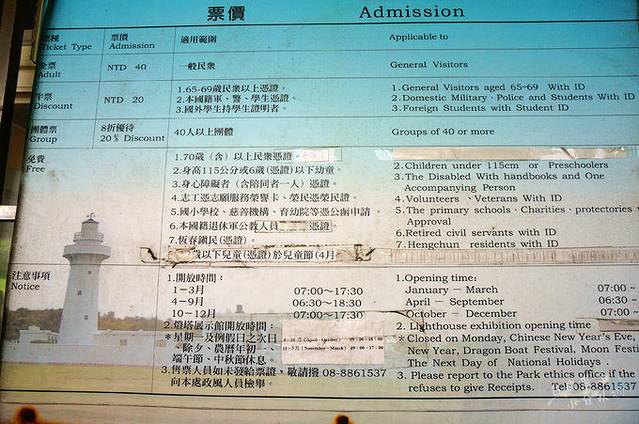 票價 Admission
票種 票價 適用範圍 Applicable to
Ticket Type Admission
全票 NTD 40 一般民衆 General Visitors
Adult
半票 NTD 20 1.65-69歲民衆以上憑證。 1.General Visitors aged 65-69 With ID
Discount 2.本國籍軍、警、學生憑證。 2.Domestic Military、Police and Students With ID
3.國外學生持學生證明者。 3.Foreign Students with Student ID
團體票 8折優待 40人以上團體 Groups of 40 or more
Group 20% Discount
免費 1.70歲(含)以上民衆憑證
Free 2.身高115公分或6歲(憑證)以下幼童。 2.Children under 115cm or Preschoolers
3.身心障礙者(含陪同者一人)憑證。 3.The Disabled With handbooks and One
Accompanying Person
4.志工憑志願服務榮譽卡、榮民憑榮民證。 4.Volunteers、Veterans With ID
5.國小學校、慈善機構、育幼院等憑公函申請。 5.The primary schools、Charities、protectories
Approval
6.本國籍退休軍公教人員 憑證。 6.Retired civil servants with ID
7.恆春鎮民(憑證)。 7.Hengchun residents with ID
歲以下兒童(憑證)於兒童節(4月
注意事項 1.開放時間： 1.Opening time:
Notice 1-3月 07:00~17:30 January - March 07:00 -
4-9月 06:30~18:30 April - September 06:30 -
10-12月 07:00~17:30 October - December 07:00 -
2.燈塔展示館開放時間： 2. Lighthouse exhibition opening time
*星期一及例假日之次日 *Closed on Monday, Chinese New Year's Eve,
、除夕、農曆年初一、 New Year, Dragon Boat Festival, Moon Festi
端午節、中秋節休息。 The Next Day of National Holidays .
4-10月(April-October) 09:00-18:00
11-3月(November-March) 09:00-17:00
3.售票人員如未發給票證，敬請撥 08-8861537 3. Please report to the Park ethics office if the
向本處政風人員檢舉。 refuses to give Receipts. Tel:08-8861537